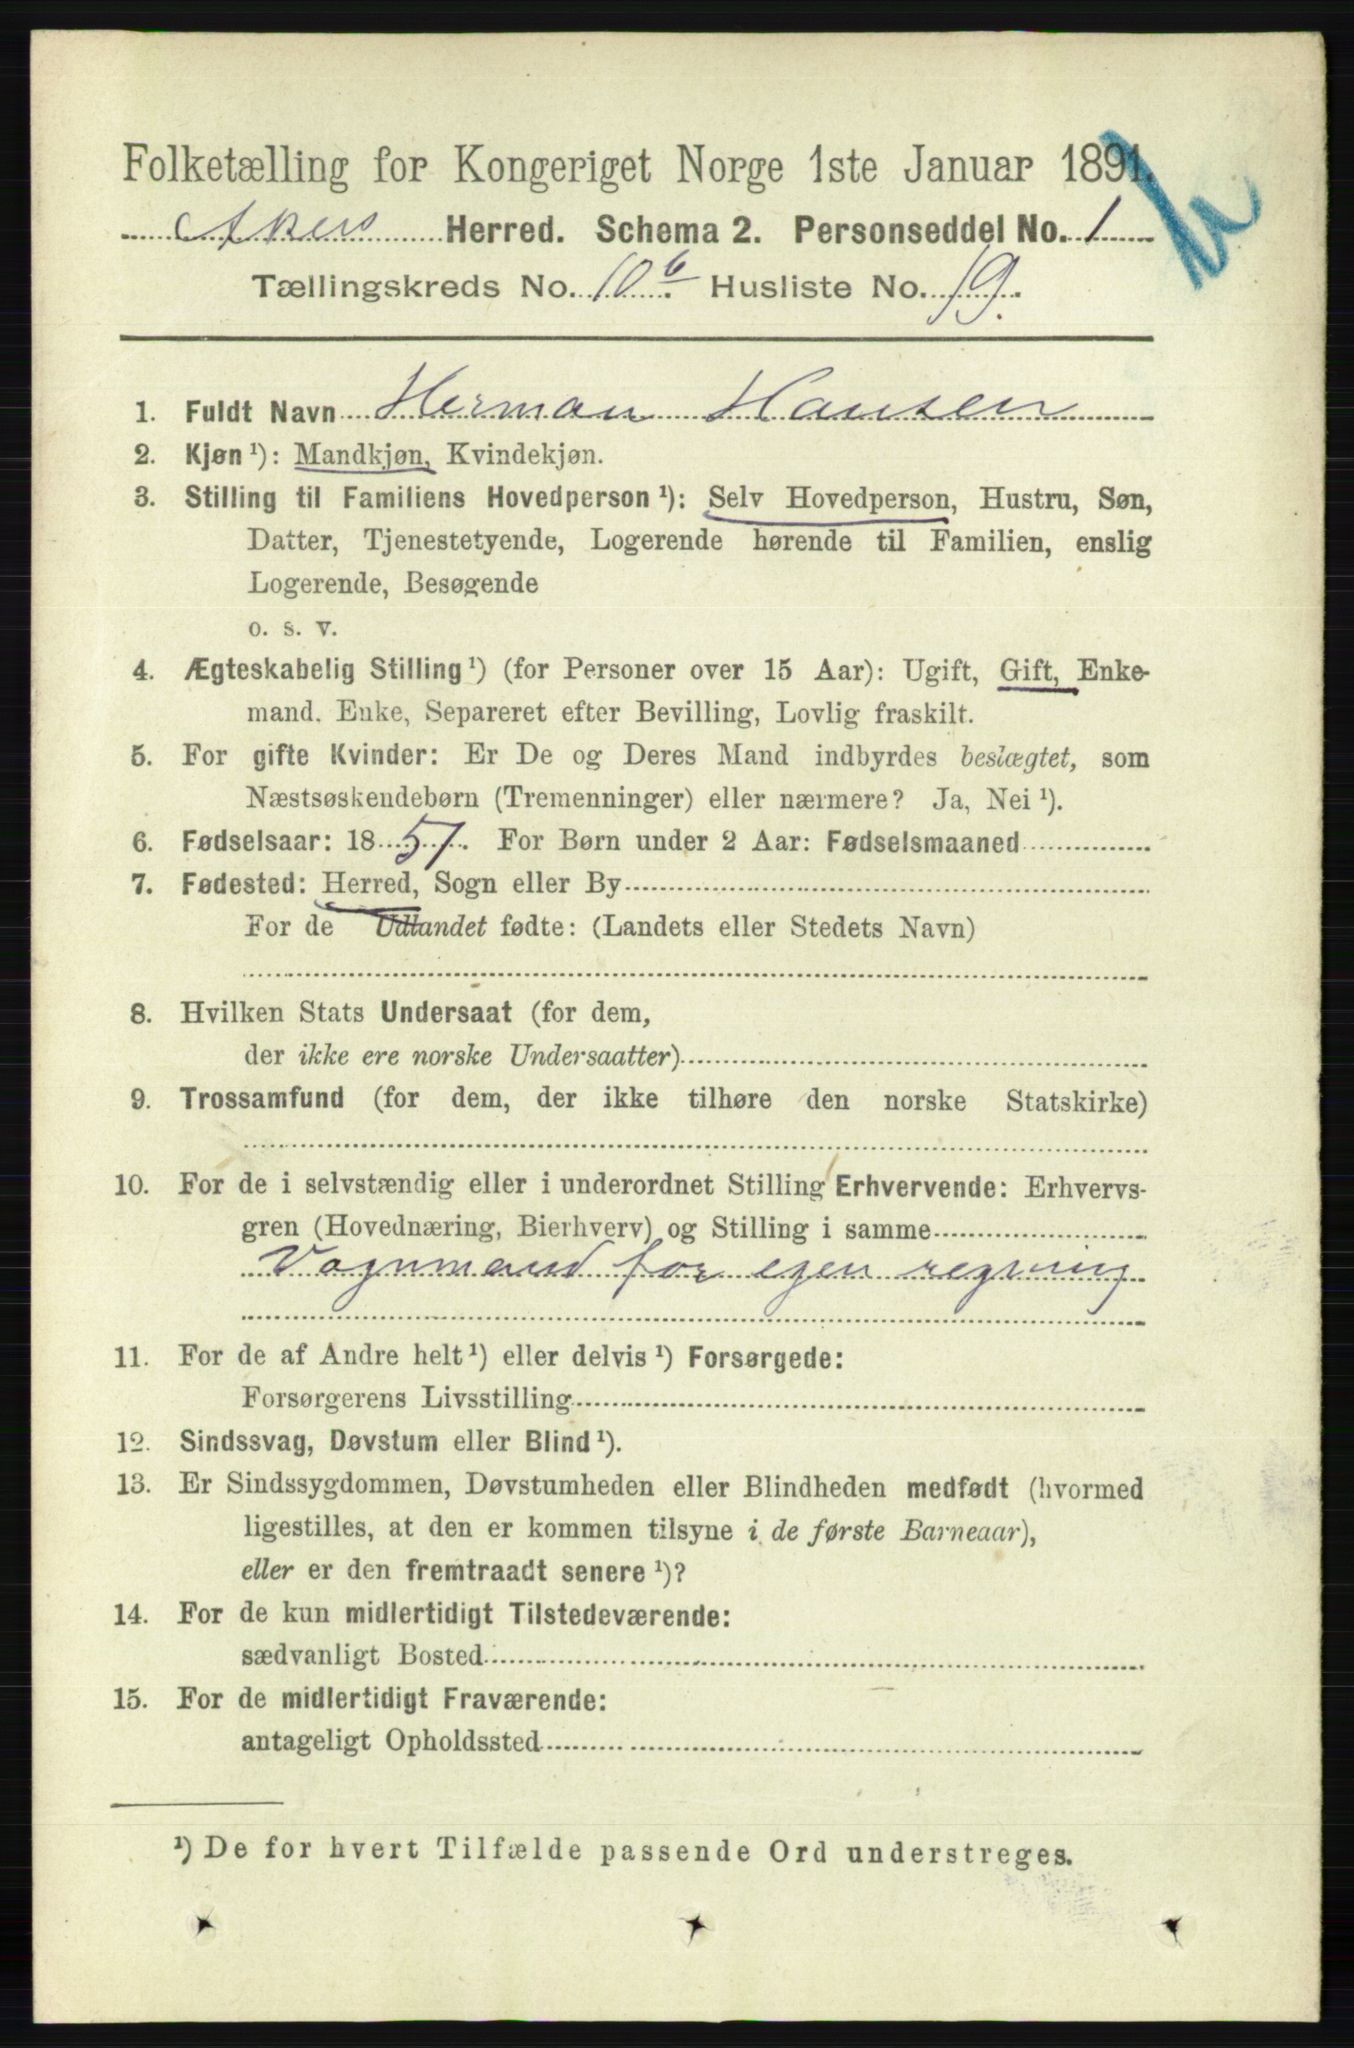 Folketælling for Kongeriget Norge 1ste Januar 1891.
Akers Herred. Schema 2. Personseddel No. 1
Tællingskreds No. 10b. Husliste No. 19.
1. Fuldt Navn Herman Hansen
2. Kjøn ¹): Mandkjøn, Kvindekjøn.
3. Stilling til Familiens Hovedperson ¹): Selv Hovedperson, Hustru, Søn,
Datter, Tjenestetyende, Logerende hørende til Familien, enslig
Logerende, Besøgende
o. s. v.
4. Ægteskabelig Stilling ¹) (for Personer over 15 Aar): Ugift, Gift, Enke-
mand. Enke, Separeret efter Bevilling, Lovlig fraskilt.
5. For gifte Kvinder: Er De og Deres Mand indbyrdes beslægtet, som
Næstsøskendebørn (Tremenninger) eller nærmere? Ja, Nei ¹).
6. Fødselsaar: 1857. For Børn under 2 Aar: Fødselsmaaned
7. Fødested: Herred, Sogn eller By
For de Udlandet fødte: (Landets eller Stedets Navn)
8. Hvilken Stats Undersaat (for dem,
der ikke ere norske Undersaatter)
9. Trossamfund (for dem, der ikke tilhøre den norske Statskirke)
10. For de i selvstændig eller i underordnet Stilling Erhvervende: Erhvervs-
gren (Hovednæring, Bierhverv) og Stilling i samme
Vognmand for egen regning
11. For de af Andre helt ¹) eller delvis ¹) Forsørgede:
Forsørgerens Livsstilling
12. Sindssvag, Døvstum eller Blind ¹).
13. Er Sindssygdommen, Døvstumheden eller Blindheden medfødt (hvormed
ligestilles, at den er kommen tilsyne i de første Barneaar),
eller er den fremtraadt senere ¹)?
14. For de kun midlertidigt Tilstedeværende:
sædvanligt Bosted
15. For de midlertidigt Fraværende:
antageligt Opholdssted
¹) De for hvert Tilfælde passende Ord understreges.